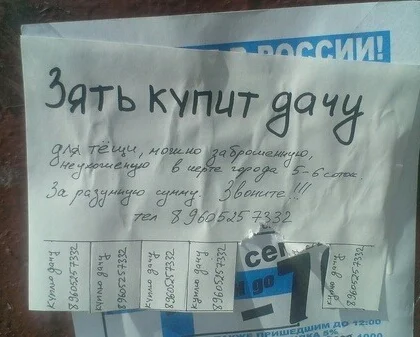 В РОССИИ!
Зять купит дачу
для тёщи, можно заброшенную,
неухоженую в черте города 5-6 соток
За разумную сумму. Звоните!!!
тел 89605257332
куплю дачу
89605257332
куплю дачу
89605257332
куплю дачу
89605257332
куплю дачу
89605257332
куплю дачу
89605257332
до
-7
ПРИШЕДШИМ ДО 12:00
5%